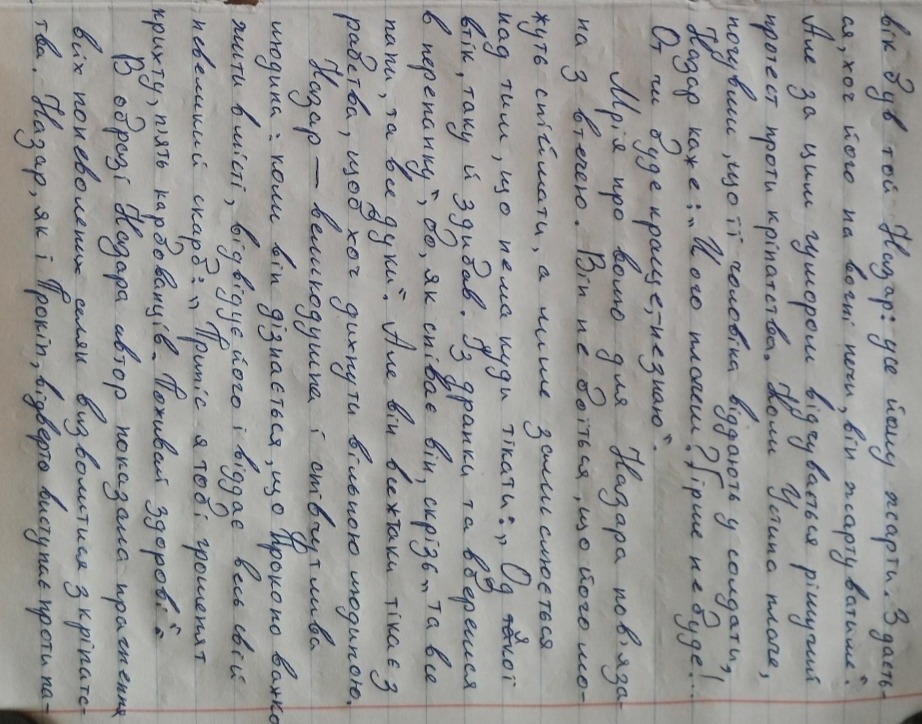 вік був той Назар: усе йому жарти. Здаєть-
ся, хоч його на вогні печи, він жартуватиме".
Але за цим гумором відчувається рішучий
протест проти кріпатства. Коли Устина плаче,
почувши, що її чоловіка віддають у солдати,
Назар каже: "Чого плачеш? Гірше не буде!..
От чи буде краще, - не знаю".
Мрія про волю для Назара пов'яза-
на з втечею. Він не боїться, що його мо-
жуть спіймати, а лише замислюється
над тим, що нема куди тікати: "Од якої
втік, таку й здибав. Із дранки та вберешся
в перепанку", бо, як співає він, скрізь "та все
пани, та все дуки". Але він все ж таки тікає з
рабства, щоб хоч дихнути вільною людиною.
Назар — великодушна і співчутлива
людина: коли він дізнається, що Прокопо важко
жити в місті, відвідує його і віддає весь свій
невеликий скарб: "Приніс я тобі грошенят
крихту, п'ять карбованців. Поживай здорові".
В образі Назара автор показала прагнення
всіх поневолених селян визволитися з кріпатс-
тва. Назар, як і Прокіп, відверто виступає проти па-